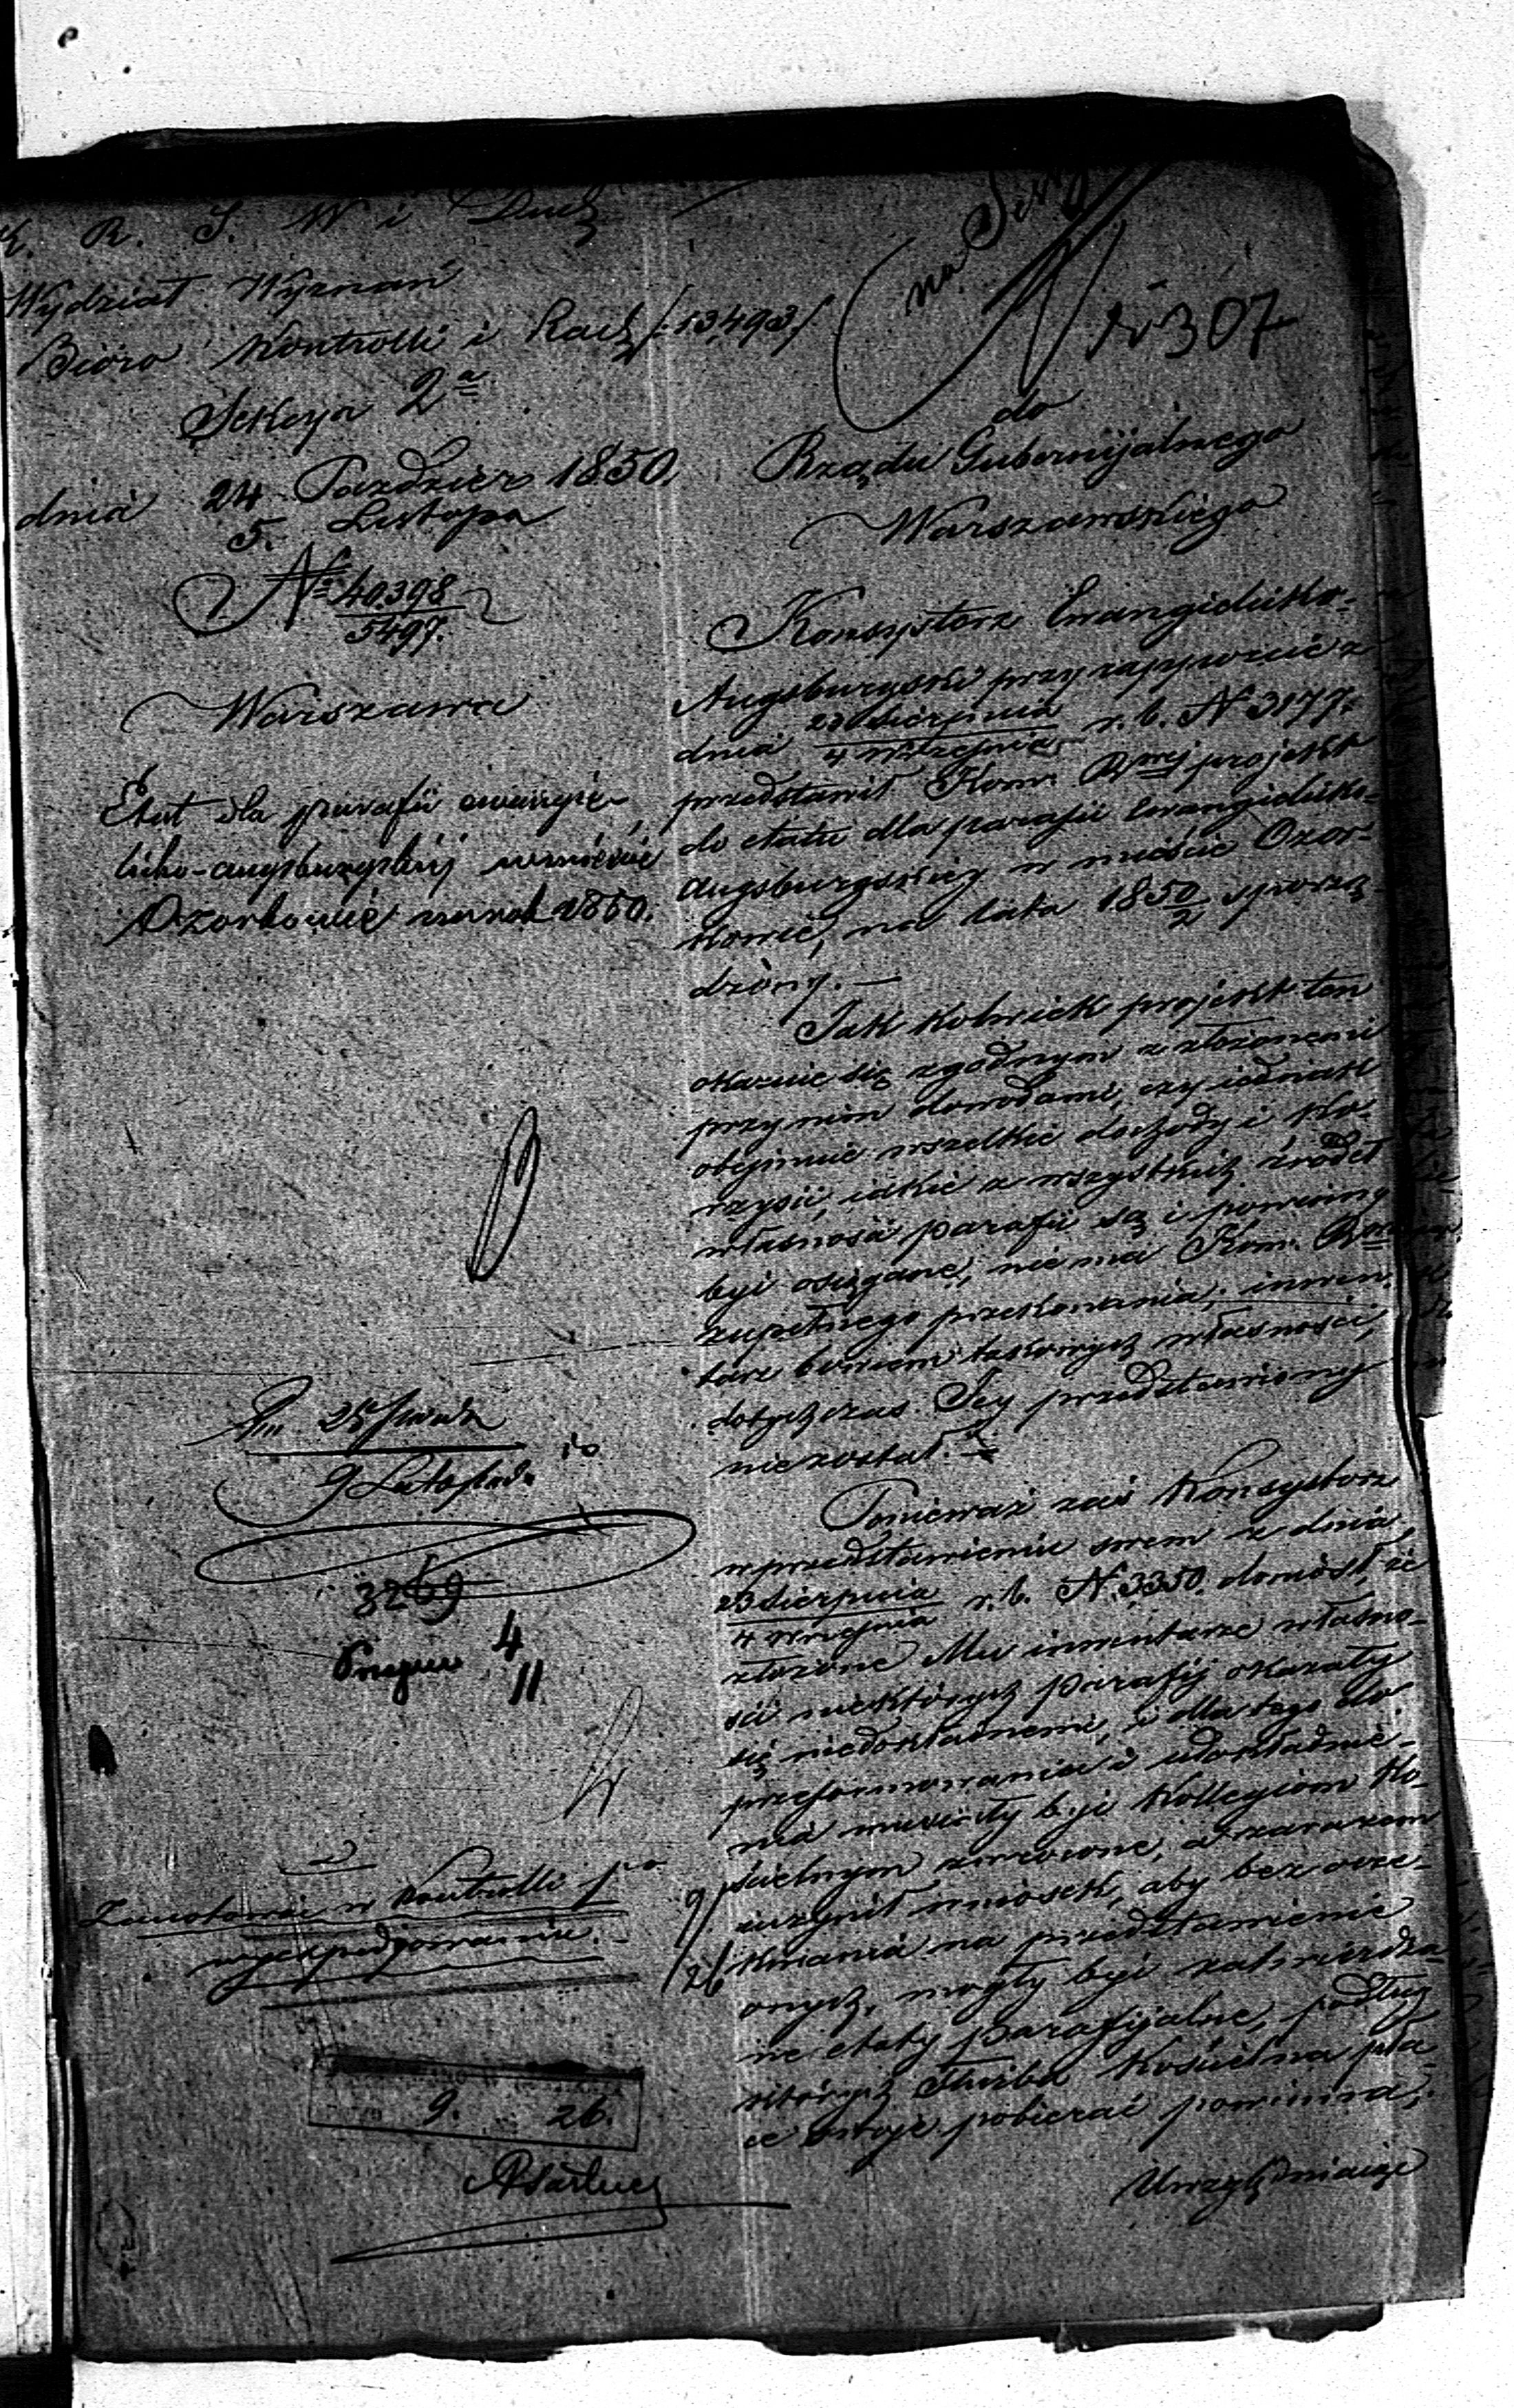 K. R. S. W i Duch
Wydział Wyznań
Bióro Kontrolli i Rach /:13,493:/
Sekcya 2ª
dnia 24 Paździer 1850.
5. Listopa
Nº 40398
5497.
Warszawa
Etat dla parafii ewangie-
licko-augsburgskiéj w mieście
Ozorkowie na rok 1850.
9 Listopada
3269
4
11
Zanotować w Kontrolli
wyexpedyowanie.
9
26
9. 26.
na
Nr 307
do
Rządu Gubernijalnego
Warszawskiego
Konsystorz Ewangielicko-
Augsburgski przy rapporcie z
dnia 23 Sierpnia
4 Września r. b. N 3177.
przedstawił Kom. Rwéj projekt
do etatu dla parafii Ewangielicko-
Augsburgskiéy w mieście Ozor-
kowie, na lata 1850/2 sporzą-
dzony. —
Jak kolwiek projekt ten
okazuie się zgodnym z złożonemi
przy nim dowodami, czy iednak
obejmuie wszelkie dochody i ko-
rzyści, iakie z wszystkich źródeł
własności parafii są i powinny
być osiągane, nie ma Kom. Rwa
zupełnego przekonania; inwen-
tarz bowiem takowych własności,
dotychczas Jéy przedstawiony
nie został. —
Ponieważ zaś Konsystorz
w przedstawieniu swem z dnia
23 Sierpnia
4 Września r. b. N. 3350. doniosł, że
złożone Mu inwentarze własno-
ści niektórych parafij okazały
się niedokładnemi, i dla tego do
przeformowania i udokładnie-
nia musiały być Kollegiom Ko-
ścielnym zwrócone, a zarazem
uczynił wniosek, aby bez ocze-
kiwania na przedstawienie
onych, mogły być zatwierdza-
ne etaty parafijalne, podług
których służba Kościelna pła-
ce swoje pobierać powinna;
Uwzględniaiąc